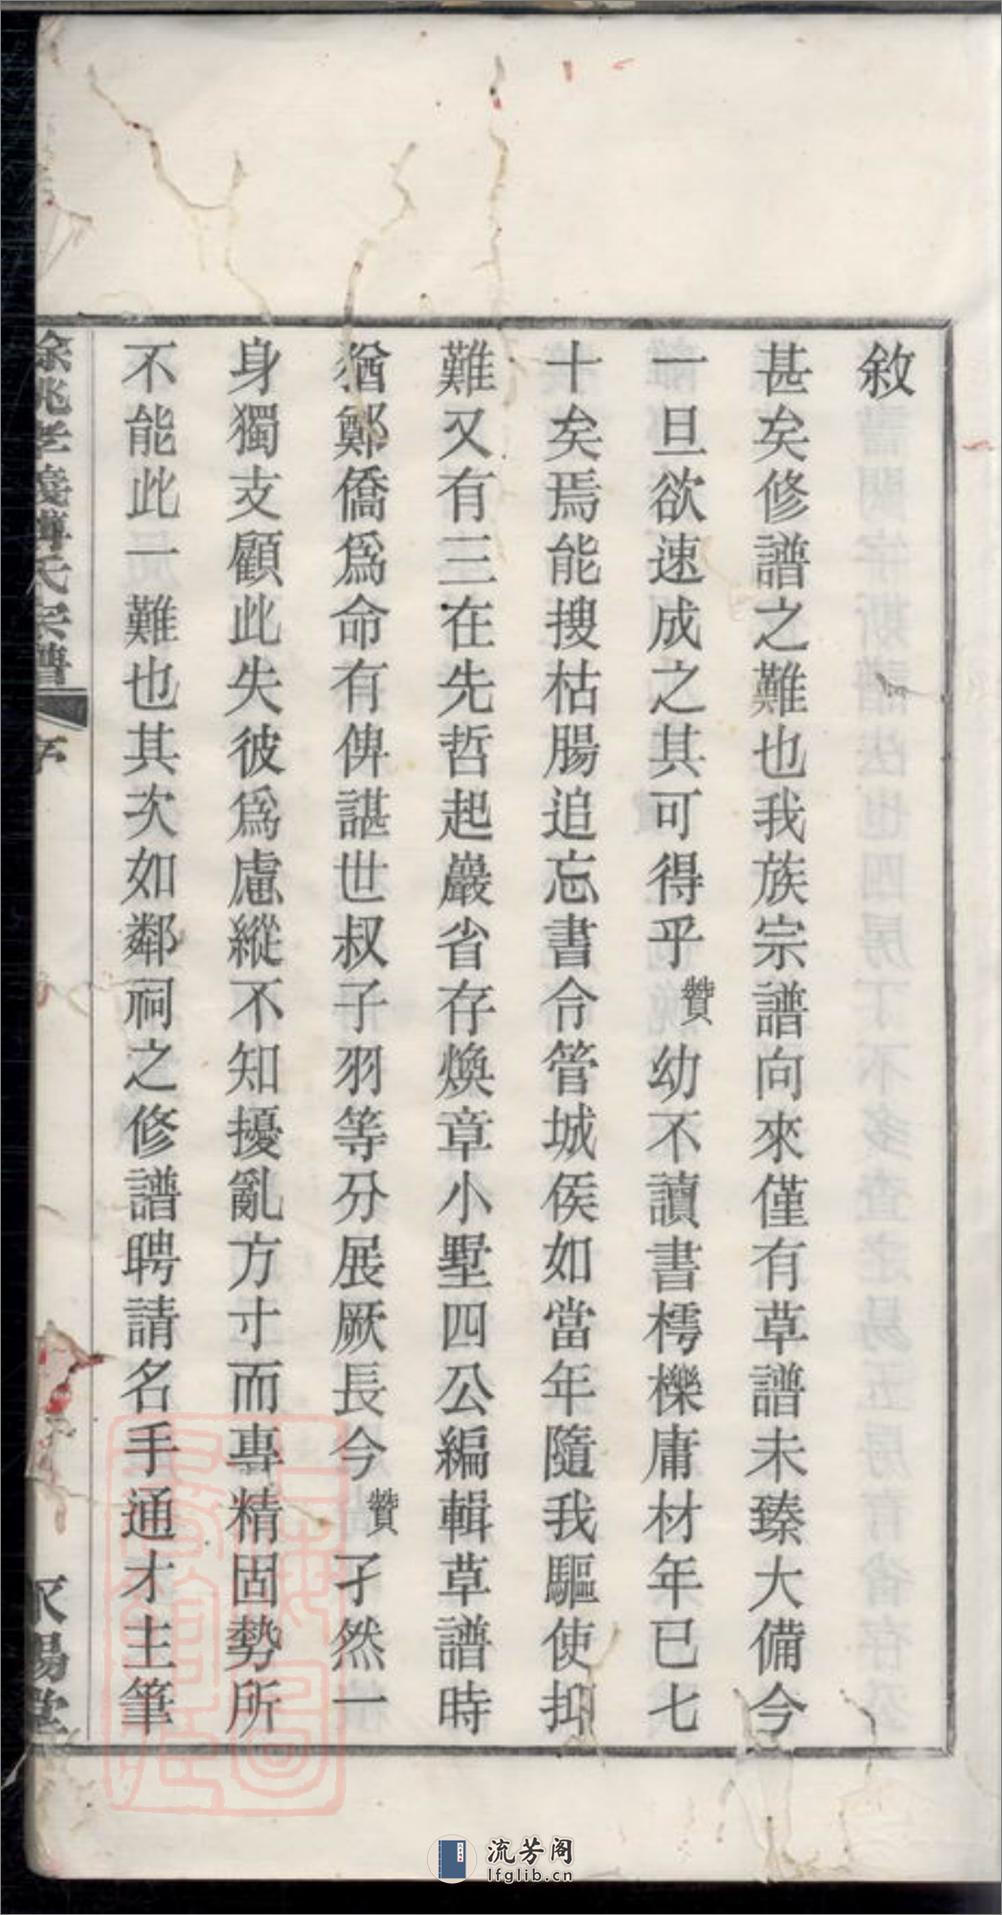 敘
甚矣修譜之難也我族宗譜向來僅有草譜未臻大備今
一旦欲速成之其可得乎贊幼不讀書樗櫟庸材年已七
十矣焉能搜枯腸追忘書令管城侯如當年隨我驅使抑
難又有三在先哲起巖省存煥章小墅四公編輯草譜時
猶鄭僑爲命有俾諶世叔子羽等分展厥長今贊孑然一
身獨支顧此失彼爲慮縱不知擾亂方寸而專精固勢所
不能此一難也其次如鄰祠之修譜聘請名手通才主筆
氏宗譜
序
流芳阁
lfglib.cn